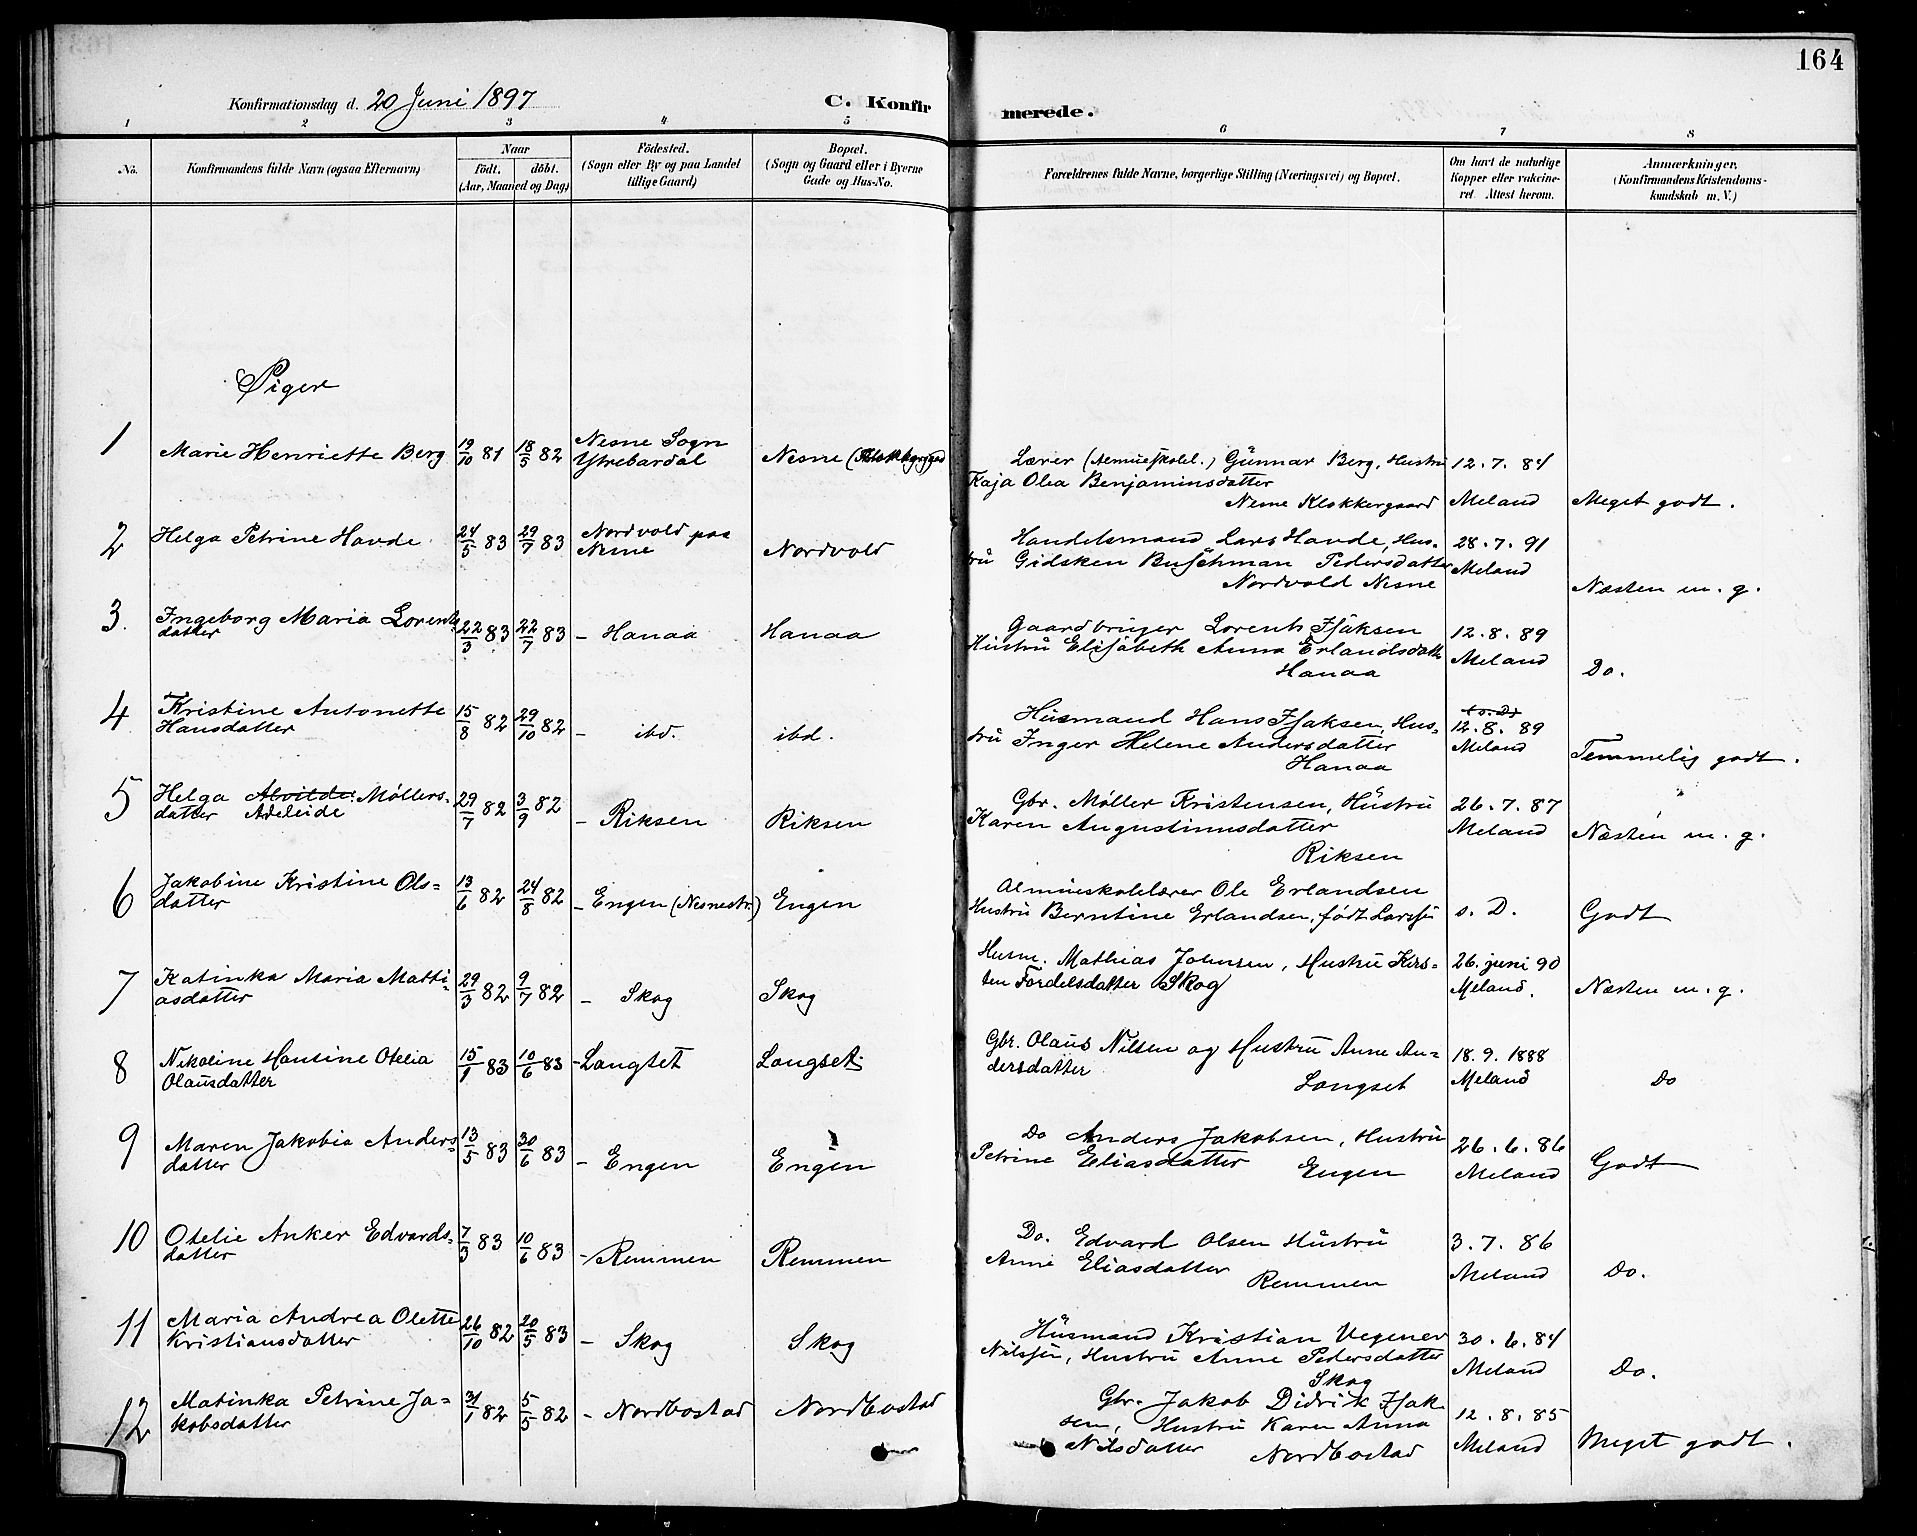 164
Konfirmationsdag d. 20 Juni 1897
C. Konfirmerede.
1 2 3 4 5 6 7 8
No.
Konfirmandens fulde Navn (ogsaa Efternavn)
Naar
födt. döbt.
(Aar, Maaned og Dag)
Födested.
(Sogn eller By og paa Landet
tillige Gaard)
Bopæl.
(Sogn og Gaard eller i Byerne
Gade og Hus-No.
Forældrenes fulde Navne, borgerlige Stilling (Næringsvei) og Bopæl.
Om havt de naturlige
Kopper eller vakcine-
ret. Attest herom.
Anmærkninger.
(Konfirmandens Kristendoms-
kundskab m. V.)
Piger
1 Marie Henriette Berg 19/10 81 18/5 82 Nesne Sogn
Ytrebardal Nesne (Klokkergaard
Lærer (Almueskolel.) Gunnar Berg, Hustru
Kaja Olea Benjaminsdatter
Nesne Klokkergaard
12.7.84
Meland Meget godt.
2 Helga Petrine Havde 24/5 83 29/7 83 Nordvold paa
Nesne Nordvold
Handelsmand Lars Havde, Hus-
tru Gidsken Buschman Pedersdatter
Nordvold Nesne
28.7.91
Meland Næsten m. g.
3. Ingeborg Maria Lorents-
datter 22/3 83 22/7 83 - Hanaa Hanaa
Gaardbruger Lorents Isaksen
Hustru Elisabeth Anna Erlandsdatt
Hanaa
12.8.89
Meland Do.
4 Kristine Antonette
Hansdatter 15/8 82 29/10 82 - ibd. ibd.
Husmand Hans Isaksen, Hus-
tru Inger Helene Andersdatter
Hanaa
12.8.89
Meland Temmelig godt.
5 Helga Alvilde Møllers-
datter Adeleide 29/7 82 3/9 82 - Riksen Riksen
Gbr. Møller Kristensen, Hustru
Karen Augustinusdatter
Riksen
26.7.87
Meland Næsten m. g.
6 Jakobine Kristine Ols-
datter 13/6 82 24/8 82 - Engen (Nesnestr.) Engen
Almueskolelærer Ole Erlandsen
Hustru Berntine Erlandsen, født Larssen
s. D. Godt
7 Katinka Maria Matti-
asdatter 29/3 82 9/7 82 - Skog Skog
Husm. Mathias Johnsen, Hustru Kirs-
ten Fordelsdatter Skog
26. juni 90
Meland. Næsten m. g.
8 Nikoline Hansine Otelia
Olausdatter 15/1 83 10/6 83 - Langset Langset
Gbr. Olaus Nilsen og Hustru Anne An-
dersdatter
Langset
18.9.1888
Meland Do
9 Maren Jakobia Anders-
datter 13/5 83 30/6 83 - Engen Engen
Do Anders Jakobsen, Hustru
Petrine Eliasdatter Engen
26.6.86
Meland Godt
10 Otelie Anker Edvards-
datter 7/3 83 10/6 83 - Remmen Remmen
Do. Edvard Olsen Hustru
Anne Eliasdatter
Remmen
3.7.86
Meland Do.
11 Maria Andrea Olette
Kristiansdatter 26/10 82 20/5 83 - Skog Skog
Husmand Kristian Vegener
Nilssen, Hustru Anne Pedersdatter
Skog
30.6.84
Meland Do.
12 Matinka Petrine Ja-
kobsdatter 31/1 82 5/5 82 - Nordbostad Nordbostad
Gbr. Jakob Didrik Isak
sen, Hustru Karen Anna
Nilsdatter Nordbostad
12.8.85
Meland Meget godt.